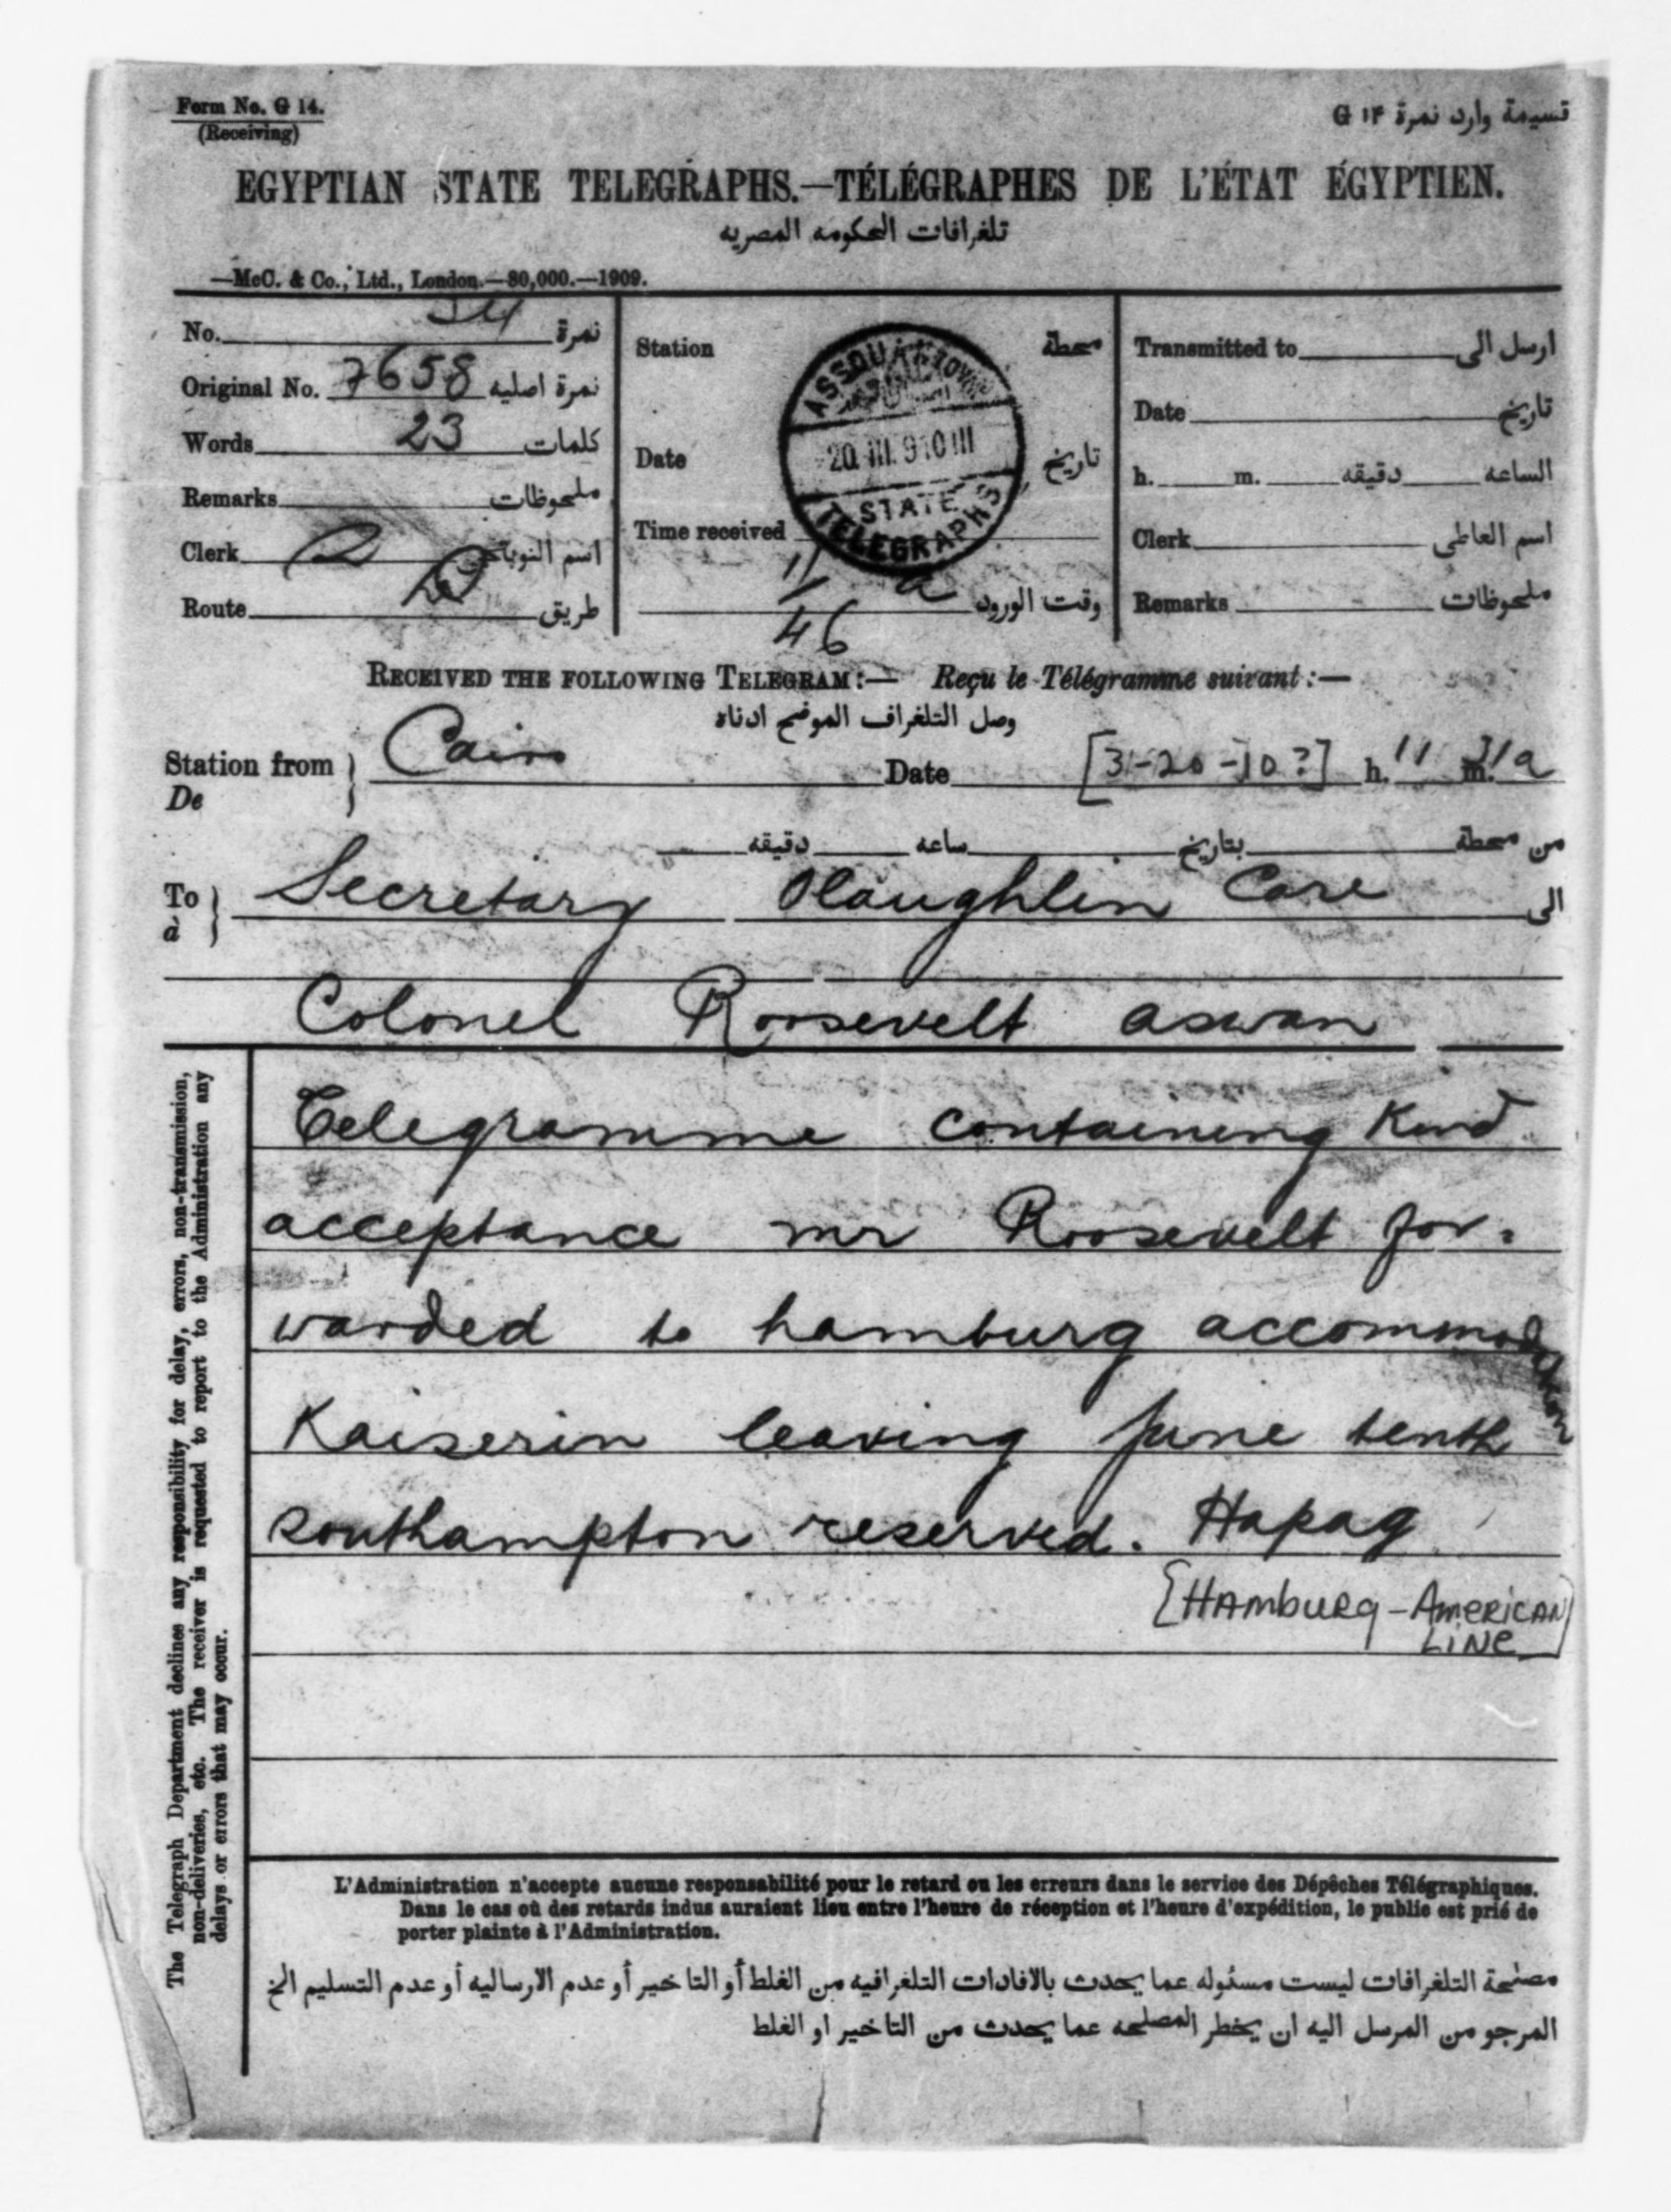 Form No. G 14.
(Receiving)
قسيمة وارد نمرة ١٤ G
EGYPTIAN STATE TELEGRAPHS.—TÉLÉGRAPHES DE L'ÉTAT ÉGYPTIEN.
تلغرافات الحكومه المصريه
—McC. & Co., Ltd., London.—80,000.—1909.
No. 54 نمرة
Original No. 7658 نمرة اصليه
Words 23 كلمات
Remarks ملحوظات
Clerk اسم النوبتجي
Route طريق
Station محطة
Date تاريخ
Time received
11 a
46
وقت الورود
ASSOUAN TOWN
20. III. 910 III
STATE
TELEGRAPHS
Transmitted to ارسل الى
Date تاريخ
h. m. دقيقه الساعه
Clerk اسم العاطى
Remarks ملحوظات
RECEIVED THE FOLLOWING TELEGRAM:— Reçu le Télégramme suivant:—
وصل التلغراف الموضح ادناه
Station from Cairo Date [3-20-10?] h. 11 m. 31 a
De
من محطة بتاريخ ساعه دقيقه
To Secretary Olaughlin Care الى
à
Colonel Roosevelt aswan
Telegramme containing Kind
acceptance mr Roosevelt for-
warded to hamburg accommodation
Kaiserin leaving June tenth
southampton reserved. Hapag
[HAmbURg-AmeRiCAN
LiNe]
The Telegraph Department declines any responsibility for delay, errors, non-transmission,
non-deliveries, etc. The receiver is requested to report to the Administration any
delays or errors that may occur.
L'Administration n'accepte aucune responsabilité pour le retard ou les erreurs dans le service des Dépêches Télégraphiques.
Dans le cas où des retards indus auraient lieu entre l'heure de réception et l'heure d'expédition, le public est prié de
porter plainte à l'Administration.
مصلحة التلغرافات ليست مسئوله عما يحدث بالافادات التلغرافيه من الغلط أو التاخير أو عدم الارساليه أو عدم التسليم الخ
المرجو من المرسل اليه ان يخطر المصلحه عما يحدث من التاخير او الغلط